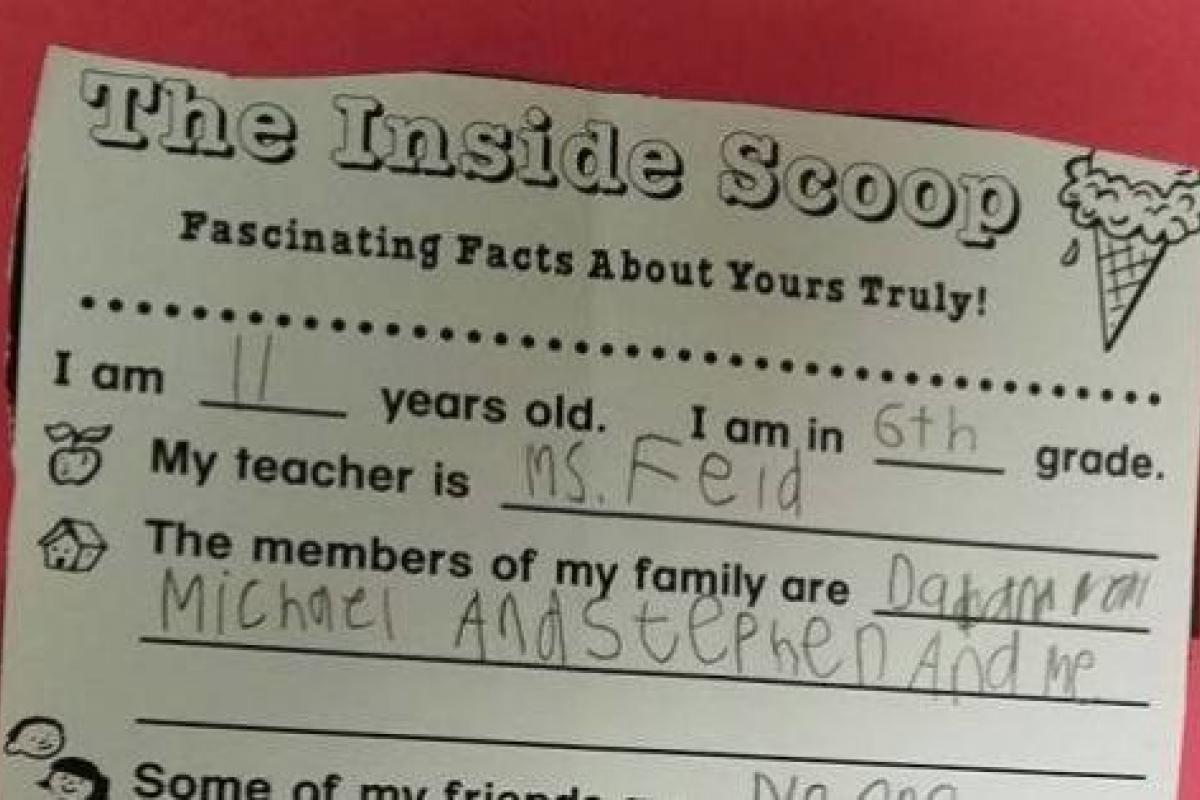 The Inside Scoop
Fascinating Facts About Yours Truly!
I am 11 years old. I am in 6th grade.
My teacher is Ms. Feid
The members of my family are
Michael And Stephen And me
Some of my friends